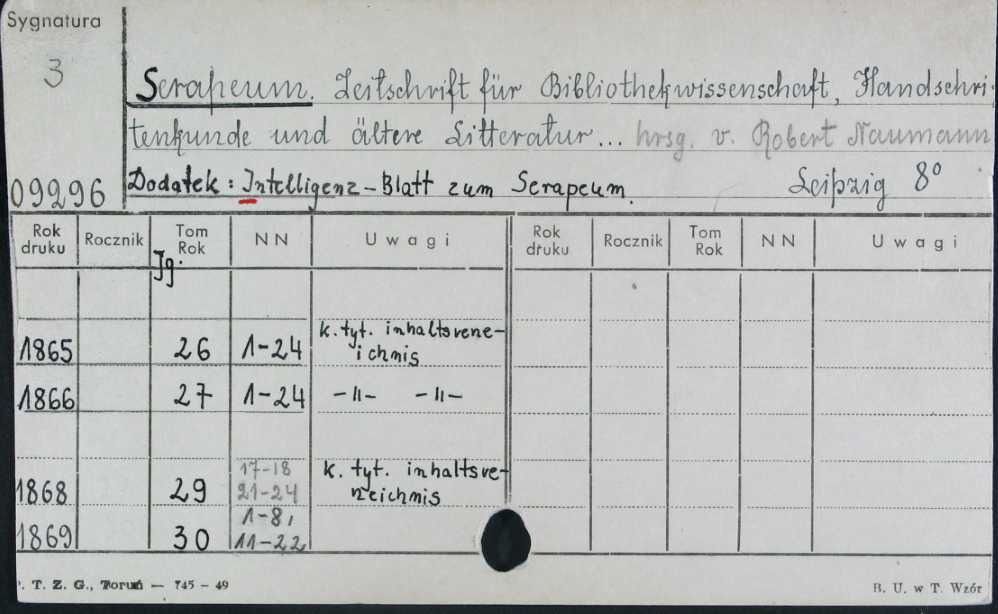 Sygnatura
3
Serapeum. Zeitschrift für Bibliothekwissenschaft, Handschri-
tenkunde und ältere Litteratur... hrsg. v. Robert Naumann
09296 Dodatek: Intelligenz-Blatt zum Serapeum. Leipzig 8°
Rok druku Rocznik Tom Rok NN Uwagi Rok druku Rocznik Tom Rok NN Uwagi
Jg.
1865 26 1-24 k. tyt. inhaltsverze-
ichnis
1866 27 1-24 -"- -"-
17-18
1868 29 21-24 k. tyt. inhaltsve-
rzeichnis
1-8,
1869 30 11-22
P. T. Z. G., Toruń — 745 – 49 B. U. w T. Wzór